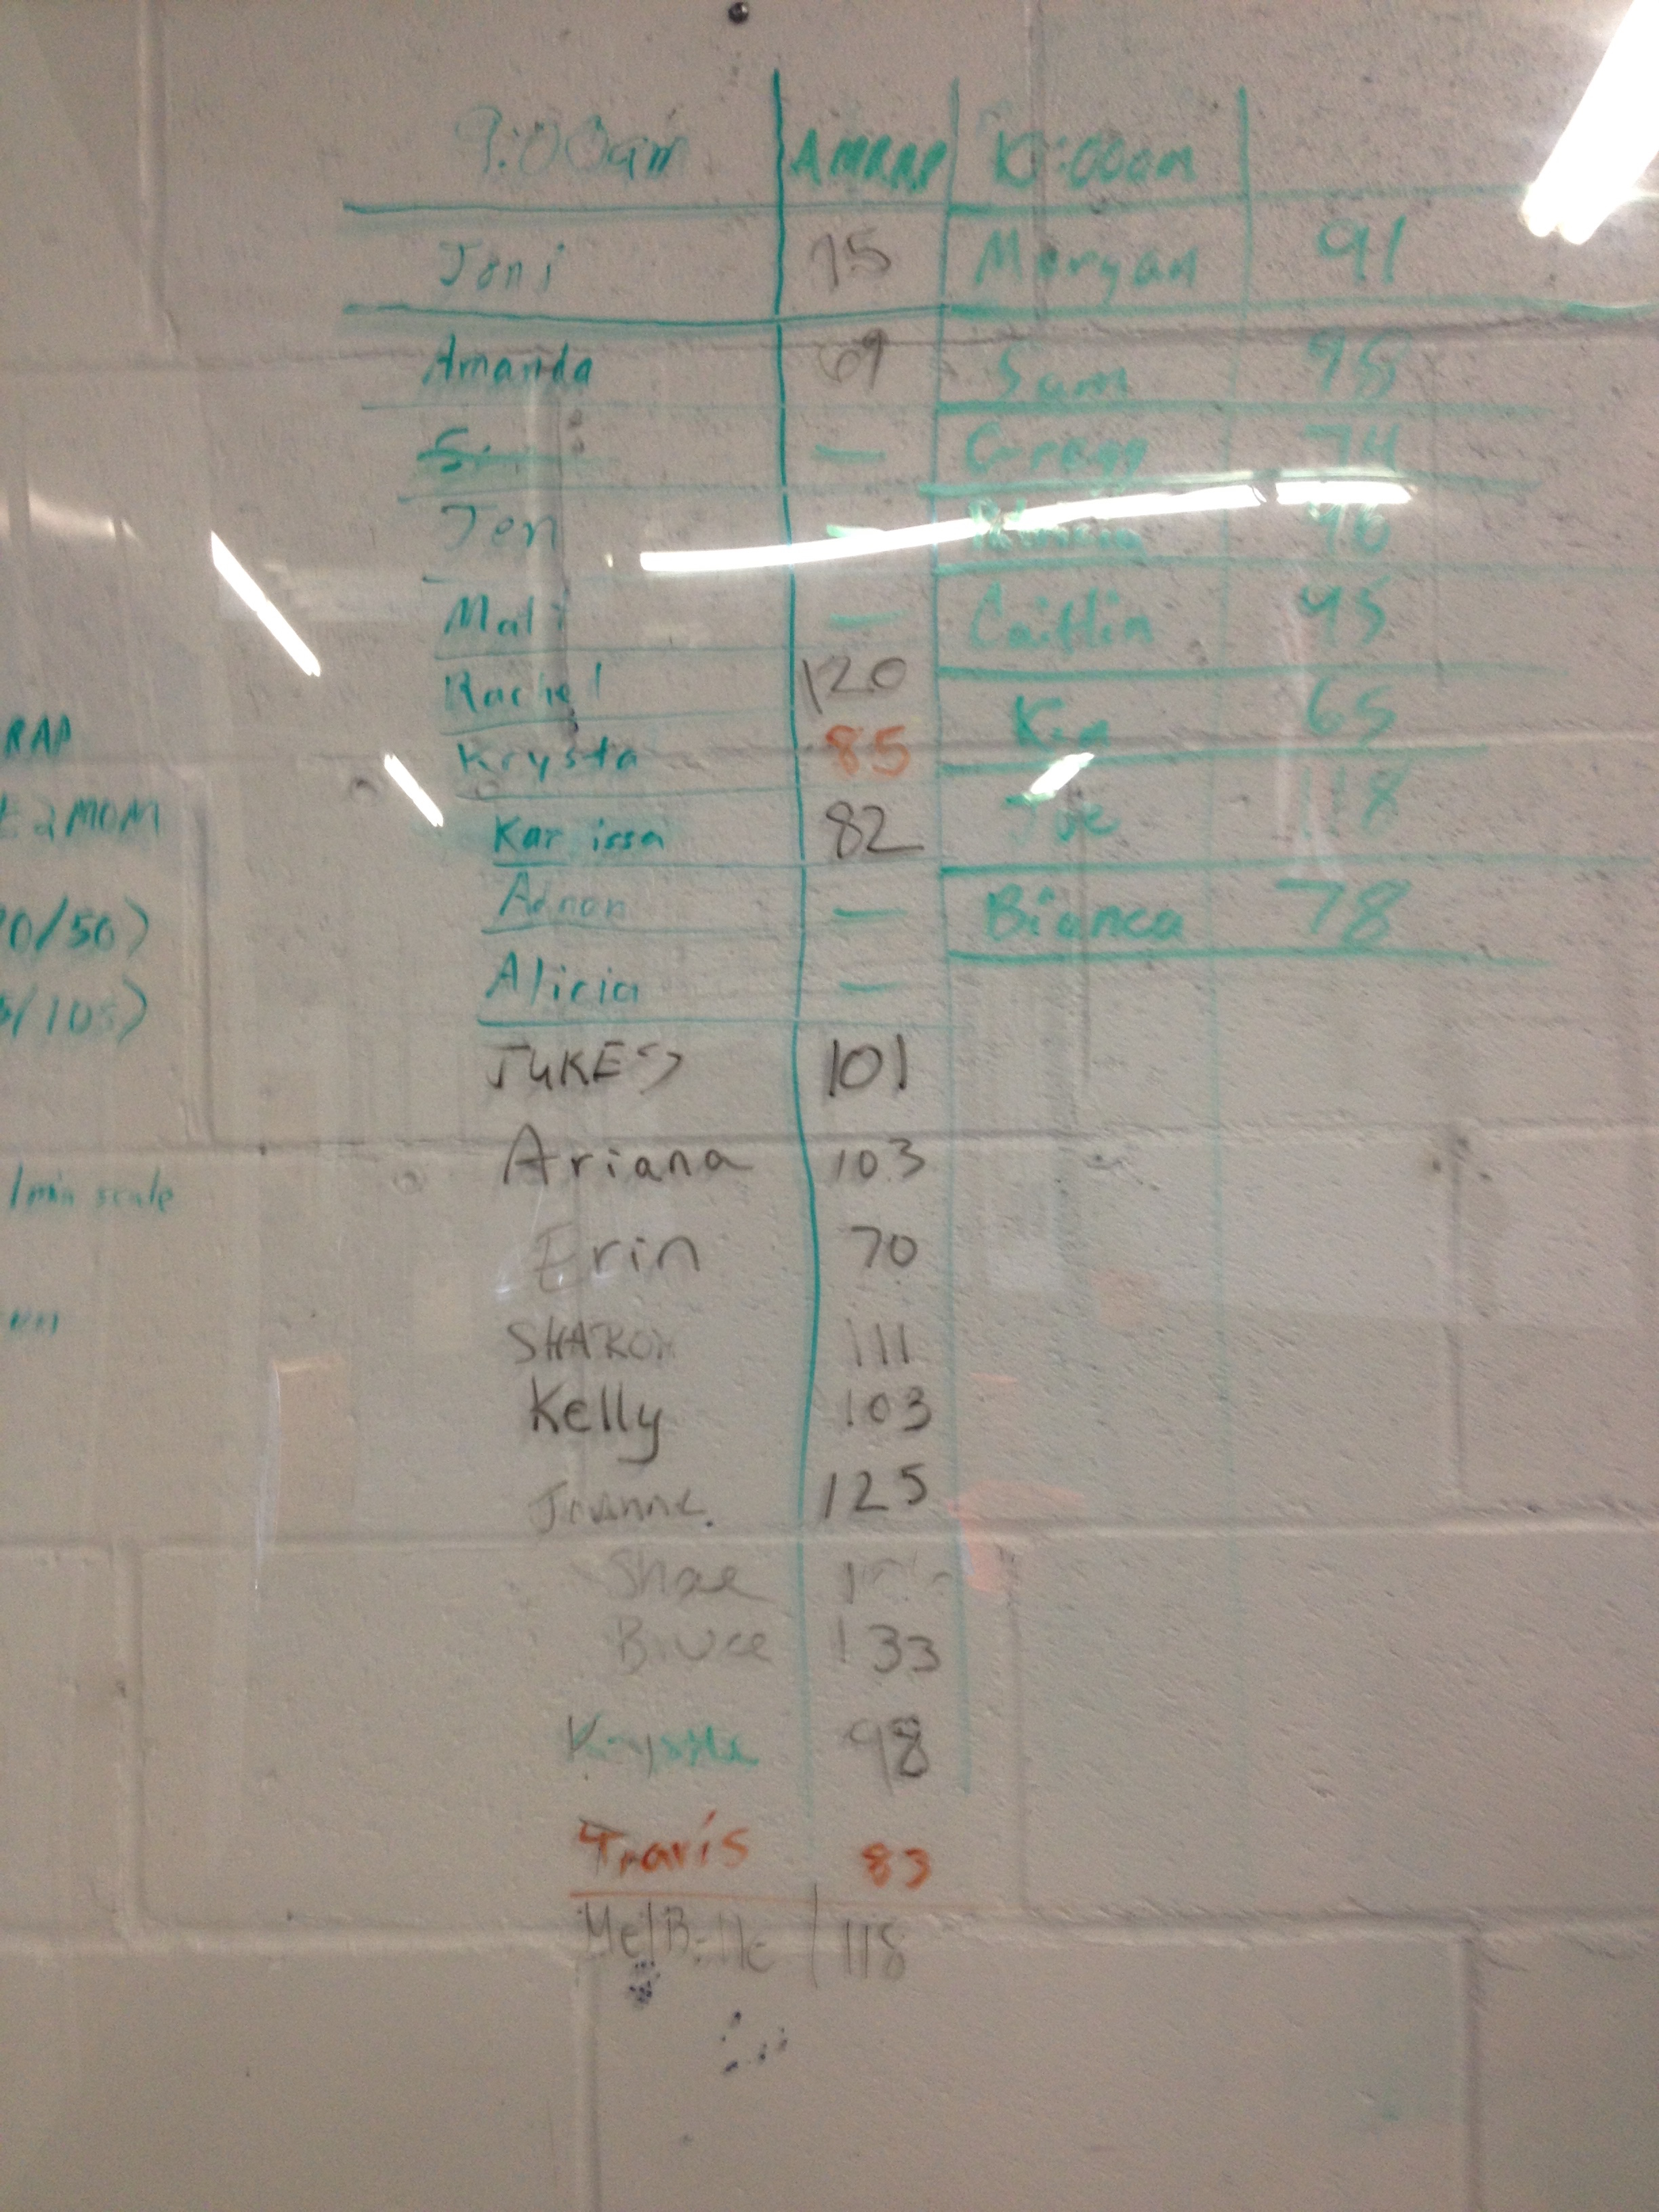 9:00am AMRAP 10:00am
Joni 75 Morgan 91
Amanda 69 Sam 98
— Gregg 74
Jen — 96
Mali — Caitlin 95
Rachel 120
Krysta 85 65
RAP
Karissa 82 Joe 118
E2MOM
Adnan — Bianca 78
0/50)
Alicia —
5/105)
JUKES 101
Ariana 103
1 min scale
Erin 70
SHARON 111
Kelly 103
Joanne. 125
Shae
Bruce 133
Krysta 98
Travis 83
MelBelle 118